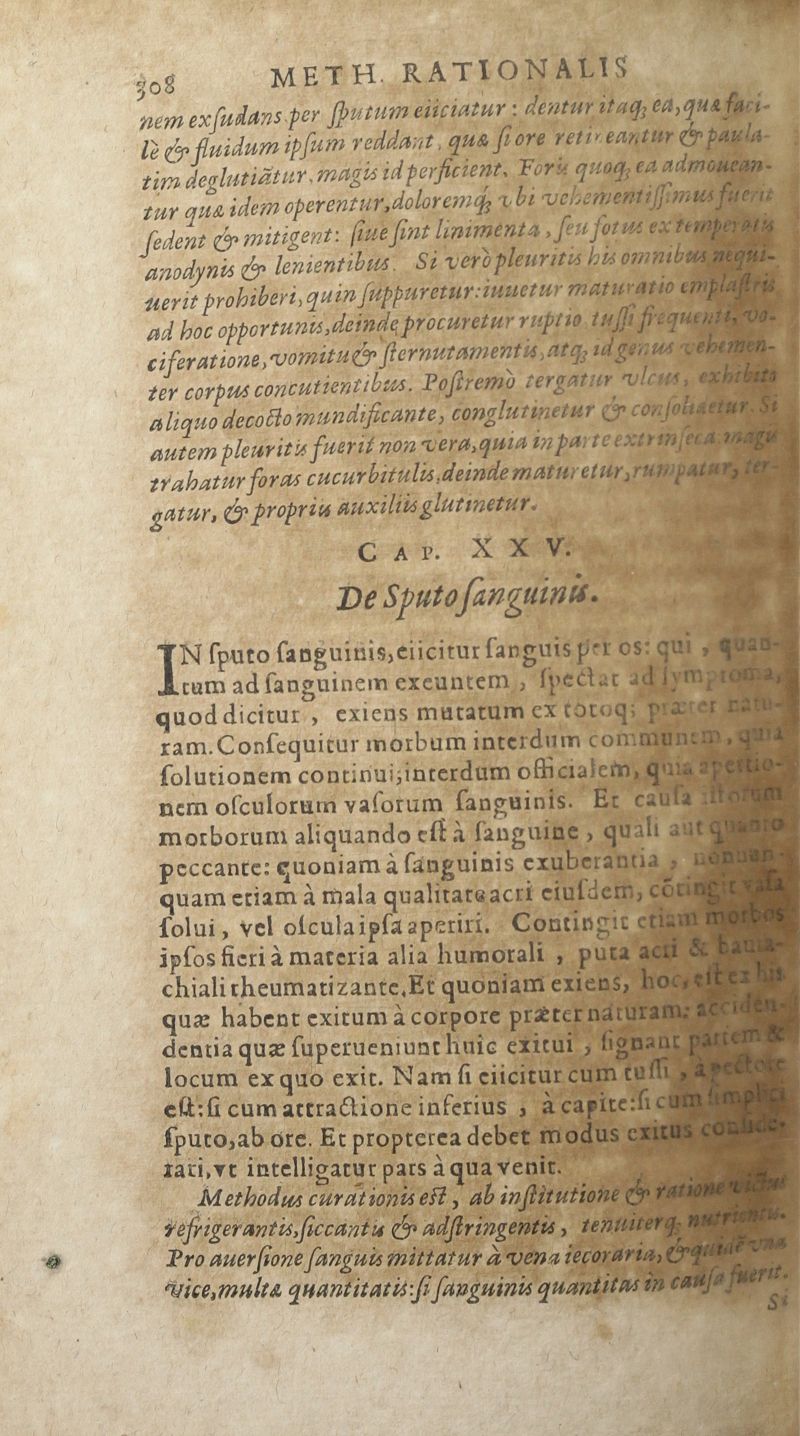 308 METH. RATIONALIS
nem exſudans per ſputum eiiciatur: dentur itaq; ea, quæ faci-
lè & fluidum ipſum reddant, quæ ſi ore retineantur & paula-
tim deglutiãtur, magis id perficient. Foris quoq; ea admouean-
tur quæ idem operentur, doloremq; vbi vehementiſſimus fuerit
ſedent & mitigent: ſiue ſint linimenta, ſeu fotus ex temperatis
anodynis & lenientibus. Si verò pleuritis his omnibus nequi-
uerit prohiberi, quin ſuppuretur: iuuetur maturatio emplaſtris
ad hoc opportunis, deinde procuretur ruptio tuſſi frequenti, vo-
ciferatione, vomitu & ſternutamentis, atq; id genus vehemen-
ter corpus concutientibus. Poſtremò tergatur vlcus, exhibito
aliquo decocto mundificante, conglutinetur & conſolidetur. Si
autem pleuritis fuerit non vera, quia in parte extrinſeca magis
trahatur foras cucurbitulis, deinde maturetur, rumpatur, ter-
gatur, & propriis auxiliis glutinetur.
CAP. XXV.
De Sputo ſanguinis.
IN ſputo ſanguinis, eiicitur ſanguis per os: qui, quan-
tum ad ſanguinem exeuntem, ſpectat ad ſymptoma,
quod dicitur, exiens mutatum ex totoq; præter natu-
ram. Conſequitur morbum interdum communem, quia
ſolutionem continui; interdum officialem, quia apertio-
nem oſculorum vaſorum ſanguinis. Et cauſa iſtorum
morborum aliquando eſt à ſanguine, quali aut quanto
peccante: quoniam à ſanguinis exuberantia, nonnun-
quam etiam à mala qualitate acri eiuſdem, cõtingit vaſa
ſolui, vel oſcula ipſa aperiri. Contingit etiam morbos
ipſos fieri à materia alia humorali, puta acri &
chiali rheumatizante. Et quoniam exiens, hoc, eſt ex his
quæ habent exitum à corpore præter naturam: acciden-
dentia quæ ſuperueniunt huic exitui, ſignant partem &
locum ex quo exit. Nam ſi eiicitur cum tuſſi, à pectore
eſt: ſi cum attractione inferius, à capite: ſi cum ſimplici
ſputo, ab ore. Et propterea debet modus exitus conſide-
rari, vt intelligatur pars à qua venit.
Methodus curationis eſt, ab inſtitutione & ratione victus
refrigerantis, ſiccantis & adſtringentis, tenuiterq;
Pro auerſione ſanguis mittatur à vena iecoraria, &
vice, multæ quantitatis: ſi ſanguinis quantitas in cauſa fuerit.
Si